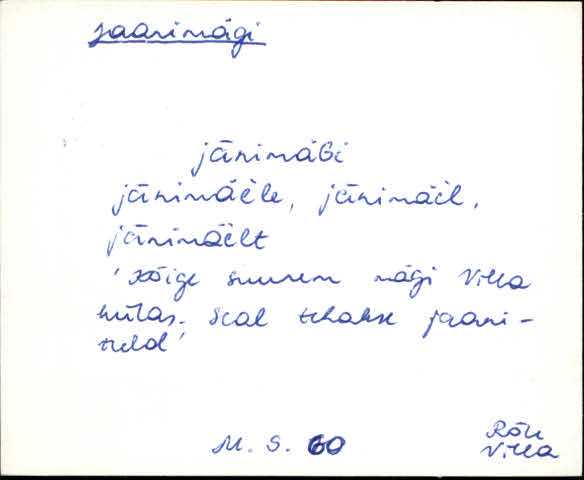 Jaanimägi
jānimäGi
jānimäele, jānimäel,
jānimäelt
'kõige suurem mägi Villa
külas. Seal tehakse jaani-
tuld'
M. S. 60
Rõu
Villa